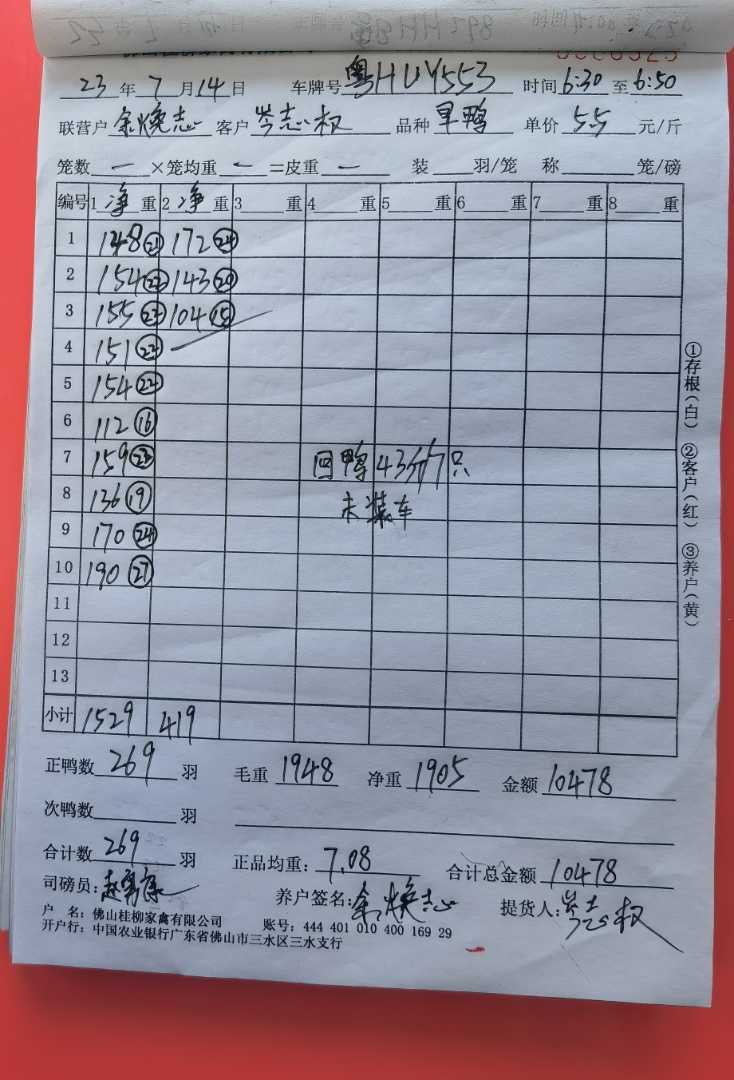 23 年 7 月 14 日 车牌号 粤HUY553 时间 6:30 至 6:50
联营户 余焕志 客户 岑志权 品种 旱鸭 单价 5.5 元/斤
笼数 一 ×笼均重 一 =皮重 一 装 羽/笼 称 笼/磅
编号 1 净 重 2 净 重 3 重 4 重 5 重 6 重 7 重 8 重
1 148 ㉑ 172 ㉔
2 154 ㉒ 143 ⑳
3 155 ㉒ 104 ⑮
4 151 ㉒
5 154 ㉒
6 112 ⑯
7 159 ㉓ 回鸭43斤/7只
8 136 ⑲ 未装车
9 170 ㉔
10 190 ㉗
11
12
13
小计 1529 419
正鸭数 269 羽 毛重 1948 净重 1905 金额 10478
次鸭数 羽
合计数 269 羽 正品均重: 7.08 合计总金额 10478
司磅员: 养户签名: 余焕志 提货人: 岑志权
户 名: 佛山桂柳家禽有限公司 账号: 444 401 010 400 169 29
开户行: 中国农业银行广东省佛山市三水区三水支行
①存根(白) ②客户(红) ③养户(黄)